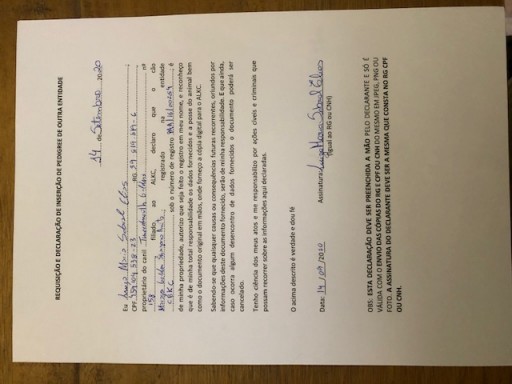 REQUISIÇÃO E DECLARAÇÃO DE INSERÇÃO DE PEDIGREE DE OUTRA ENTIDADE
14 de Setembro 2020
Eu
CPF RG
proprietário do canil nº
filiado ao ALKC, declaro que o cão
registrado na entidade
CBKC sob o número de registro e
de minha propriedade, autorizo que seja feito o registro em meu nome, e reconheço
que é de minha total responsabilidade os dados fornecidos e a posse do animal bem
como o documento original em mãos, onde forneço a cópia digital para o ALKC.
Sabendo-se que quaisquer causas ou consequências futuras recorrentes, oriundos por
informações deste documento fornecido, serão de minha responsabilidade. E que ainda,
caso ocorra algum desencontro de dados fornecidos o documento poderá ser
cancelado.
Tenho ciência dos meus atos e me responsabilizo por ações cíveis e criminais que
possam recorrer sobre as informações aqui declaradas.
O acima descrito é verdade e dou fé
Data: 14/09/2020 Assinatura:
(igual ao RG ou CNH)
OBS: ESTA DECLARAÇÃO DEVE SER PREENCHIDA A MÃO PELO DECLARANTE E SÓ É
VÁLIDA COM O ENVIO DAS CÓPIAS DO RG E CPF OU CNH DO MESMO EM JPEG, PNG OU
FOTO. A ASSINATURA DO DECLARANTE DEVE SER A MESMA QUE CONSTA NO RG CPF
OU CNH.